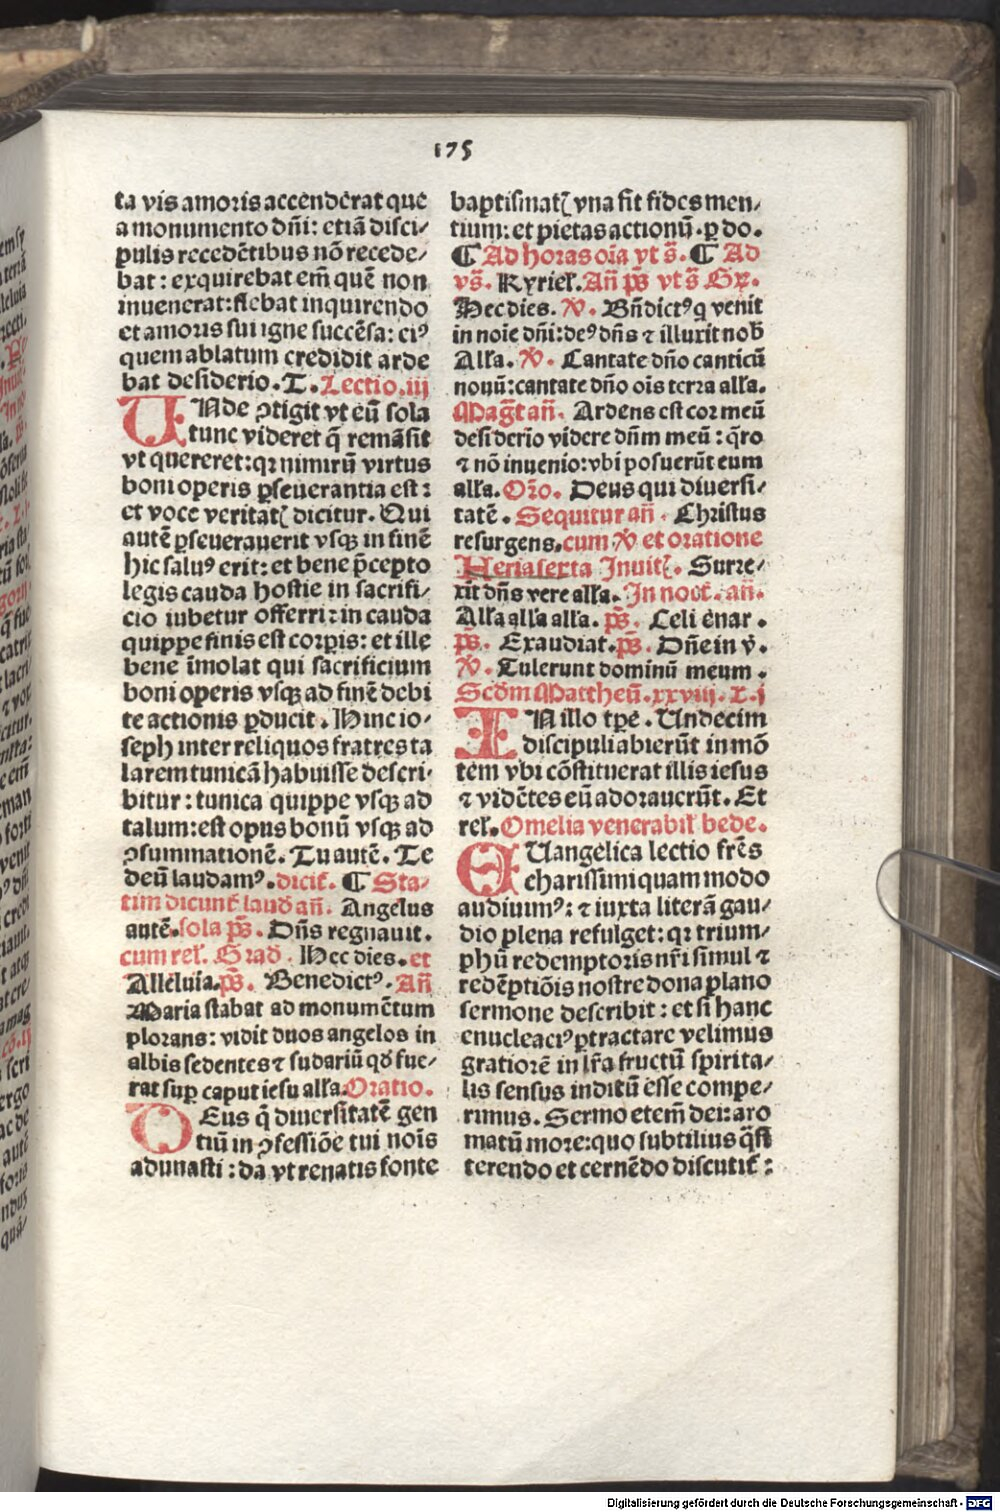 175
ta vis amoris accenderat que
a monumento dñi: etiã disci-
pulis recedẽtibus nõ recede-
bat: exquirebat em̃ quẽ non
inuenerat: flebat inquirendo
et amoris sui igne succẽsa: ei⁹
quem ablatum credidit arde
bat desiderio. T. Lectio.iij
UNde ꝯtigit vt eũ sola
tunc videret q̃ remãsit
vt quereret: qꝛ nimirũ virtus
boni operis ꝑseuerantia est:
et voce veritatꝭ dicitur. Qui
autẽ ꝑseuerauerit vsqꝫ in finẽ
hic salu⁹ erit: et bene p̃cepto
legis cauda hostie in sacrifi-
cio iubetur offerri: in cauda
quippe finis est corꝑis: et ille
bene ĩmolat qui sacrificium
boni operis vsqꝫ ad finẽ debi
te actionis ꝑducit. Hinc io-
seph inter reliquos fratres ta
larem tunicã habuisse descri-
bitur: tunica quippe vsqꝫ ad
talum: est opus bonũ vsqꝫ ad
ꝯsummationẽ. Tu autẽ. Te
deũ laudam⁹. dicit̃. ¶ Sta-
tim dicunt̃ laud̃ añ. Angelus
autẽ. sola p̃s. Dñs regnauit.
cum rel̃. Grad̃. Hec dies. et
Alleluia. p̃s. Benedict⁹. Añ
Maria stabat ad monumẽtum
plorans: vidit duos angelos in
albis sedentes ⁊ sudariũ qd̃ fue-
rat suꝑ caput iesu all̃a. Oratio.
DEus q̃ diuersitatẽ gen
tiũ in ꝯfessiõe tui noĩs
adunasti: da vt renatis fonte
baptismatꝭ vna sit fides men-
tium: et pietas actionũ. ꝑ do.
¶ Ad horas oĩa vt s̃. ¶ Ad
vs̃. Kyriel̃. Añ p̃s vt s̃ Gr̃.
Hec dies. ꝟ. Bñdict⁹ q venit
in noĩe dñi: de⁹ dñs ⁊ illuxit nob̃
All̃a. ꝟ. Cantate dño canticũ
nouũ: cantate dño oĩs terra all̃a.
Mag̃t añ. Ardens est cor meũ
desiderio videre dñm meũ: q̃ro
⁊ nõ inuenio: vbi posuerũt eum
all̃a. Or̃o. Deus qui diuersi-
tatẽ. Sequitur añ. Christus
resurgens. cum ꝟ et oratione
Feria sexta Inuitꝭ. Surre-
xit dñs vere all̃a. In noct̃. añ.
All̃a all̃a all̃a. p̃s. Celi enar.
p̃s. Exaudiat. p̃s. Dñe in ṽ.
ꝟ. Tulerunt dominũ meum.
Scd̃m Mattheũ. xxviij. L. j
IN illo tꝑe. Undecim
discipuli abierũt in mõ
tem vbi cõstituerat illis iesus
⁊ vidẽtes eũ adorauerũt. Et
rel̃. Omelia venerabil̃ bede.
EUangelica lectio fr̃es
charissimi quam modo
audiuim⁹: ⁊ iuxta literã gau-
dio plena refulget: qꝛ trium-
phũ redemptoris nr̃i simul ⁊
redẽptiõis nostre dona plano
sermone describit: et si hanc
enucleaci⁹ ꝑtractare velimus
gratiorẽ in lr̃a fructũ spirita-
lis sensus inditũ esse compe-
rimus. Sermo etem̃ dei: aro
matũ more: quo subtilius q̃si
terendo et cernẽdo discutit̃:
Digitalisierung gefördert durch die Deutsche Forschungsgemeinschaft - DFG